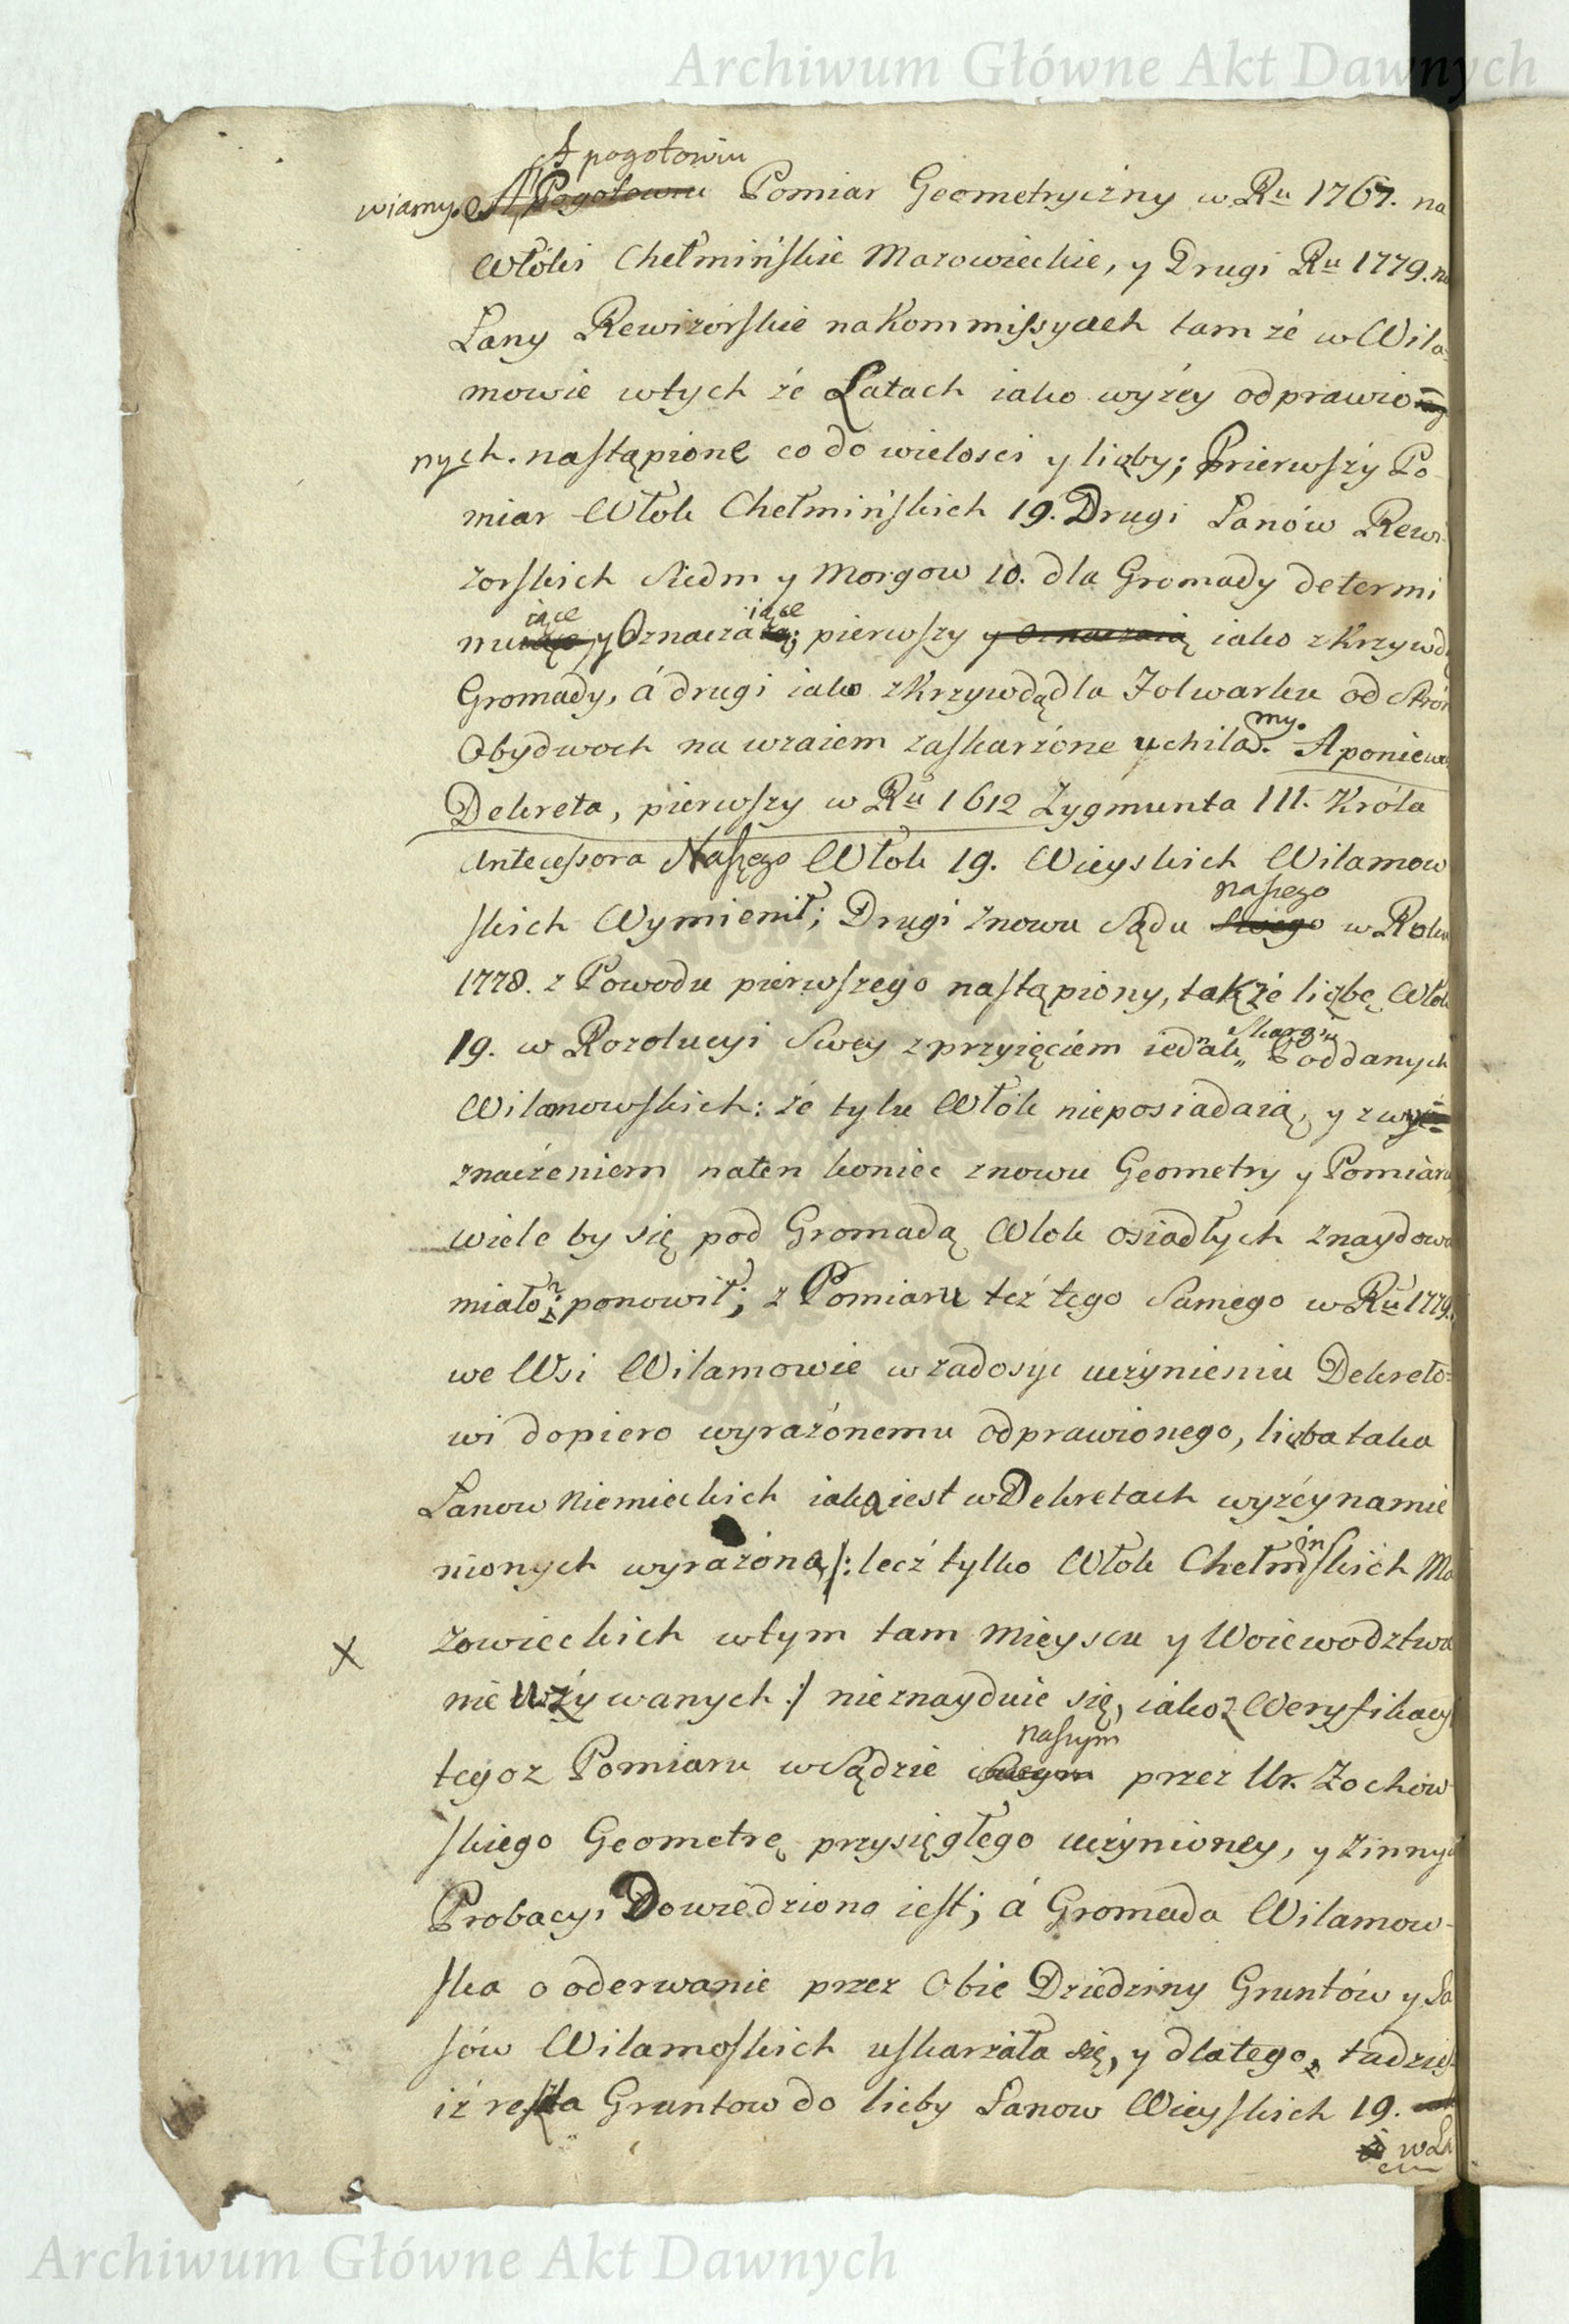 Archiwum Główne Akt Dawnych
A pogotowiu
wiamy. A Pogotowiu Pomiar Geometryczny w Ru 1767. na
Włóki Chełmińskie Mazowieckie, y Drugi Ru 1779. na
Łany Rewizorskie na Kommissyach tam że w Wila-
mowie wtych że Latach iako wyżey odprawio
nych. nastąpione co do wielosci y liczby; Pierwszy Po
miar Włok Chełmińskich 19. Drugi Łanów Rewi
zorskich Siedm y Morgow 10. dla Gromady determi
iące iące
nu y Oznacza; pierwszy y Oznaczaią iako z Krzywdą
Gromady, á drugi iako z Krzywdą dla Folwarku od Stron
my.
Obydwoch na wzaiem zaskarżone uchila. A ponieważ
Dekreta, pierwszy w Ru 1612 Zygmunta III. Króla
Antecessora Naszego Włok 19. Wieyskich Wilamow
naszego
skich Wymienił; Drugi znowu Sądu Swego w Roku
1778. z Powodu pierwszego nastąpiony, także liczbę Włok
Skargi
19. w Rozolucyi Swey z przyięciem iednak Poddanych
Wilamowskich: że tylu Włók nieposiadaią, y z wy
znaczeniem naten koniec znowu Geometry y Pomiaru
wiele by się pod Gromadą Włok osiadłych znaydowa
miało; ponowił; z Pomiaru też tego Samego w Ru 1779.
we Wsi Wilamowie w zadosyc uczynieniu Dekreto-
wi dopiero wyrażónemu odprawionego, liczba taka
Łanow Niemieckich iaka iest w Dekretach wyżey namie
nionych wyrażóna /: lecż tylko Włok Chełmińskich Ma
X zowieckich wtym tam Mieyscu y Woiewodztwa
nie używanych :/ nieznayduie się, iako z Weryfikacyi
naszym
tegoż Pomiaru w Sądzie Swoym przez Ur. Żochow
skiego Geometrę przysięgłego uczynioney, y z innych
Probacyi Dowiedziono iest; á Gromada Wilamow-
ska o oderwanie przez Obie Dziedziny Gruntów y La
sów Wilamoskich uskarżała się, y dlatego, tudzież
iż reszta Gruntow do liczby Łanow Wieyskich 19.
w La
Archiwum Główne Akt Dawnych